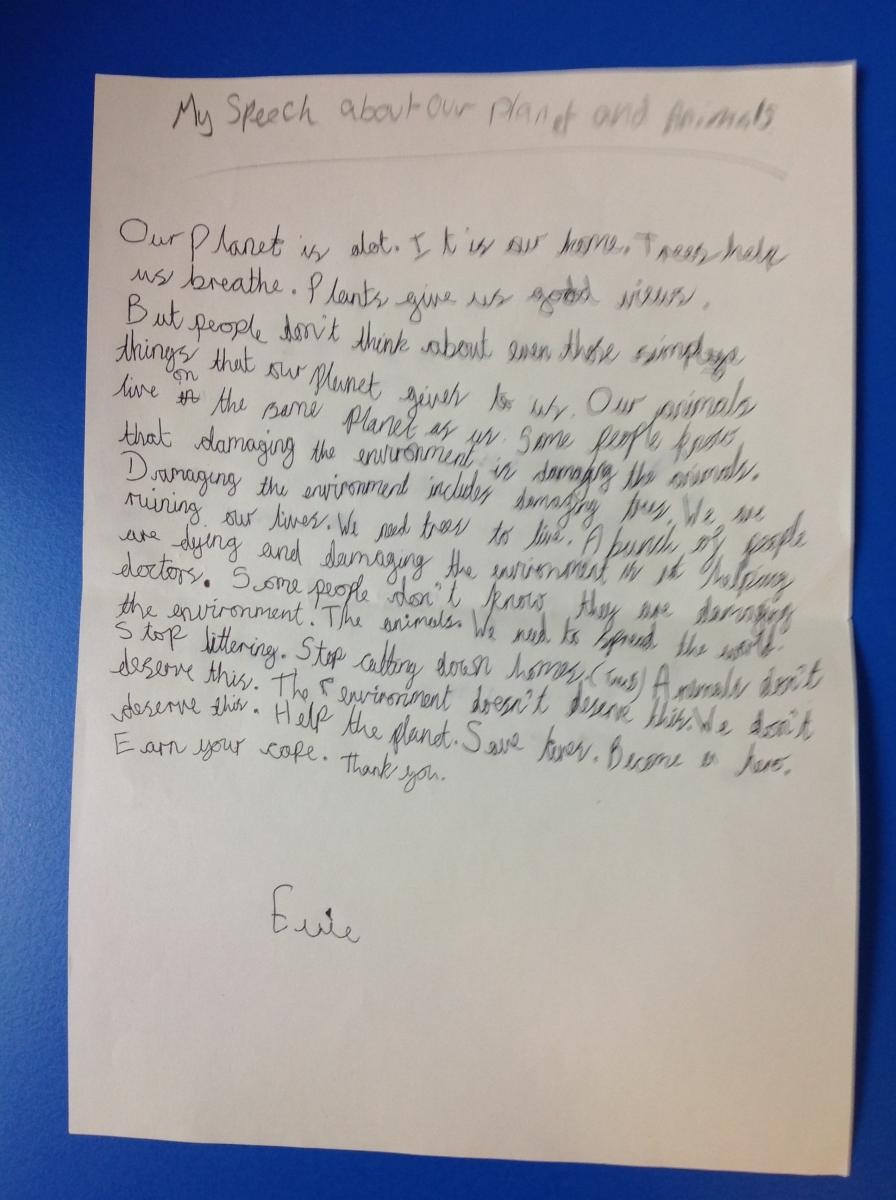 My Speech about Our Planet and Animals
Our Planet is alot. It is our home. Trees help
us breathe. Plants give us good views.
But people don't think about even those simple
things that our planet gives to us. Our animals
live on the same planet as us. Some people know
that damaging the environment is damaging the animals.
Damaging the environment includes damaging trees. We are
ruining our lives. We need trees to live. A bunch of people
are dying and damaging the environment is helping
doctors. Some people don't know they are damaging
the environment. The animals. We need to spread the world.
Stop littering. Stop cutting down homes. (trees) Animals don't
deserve this. The environment doesn't deserve this. We don't
deserve this. Help the planet. Save Become a hero.
Earn your cape. Thank you.
Evie